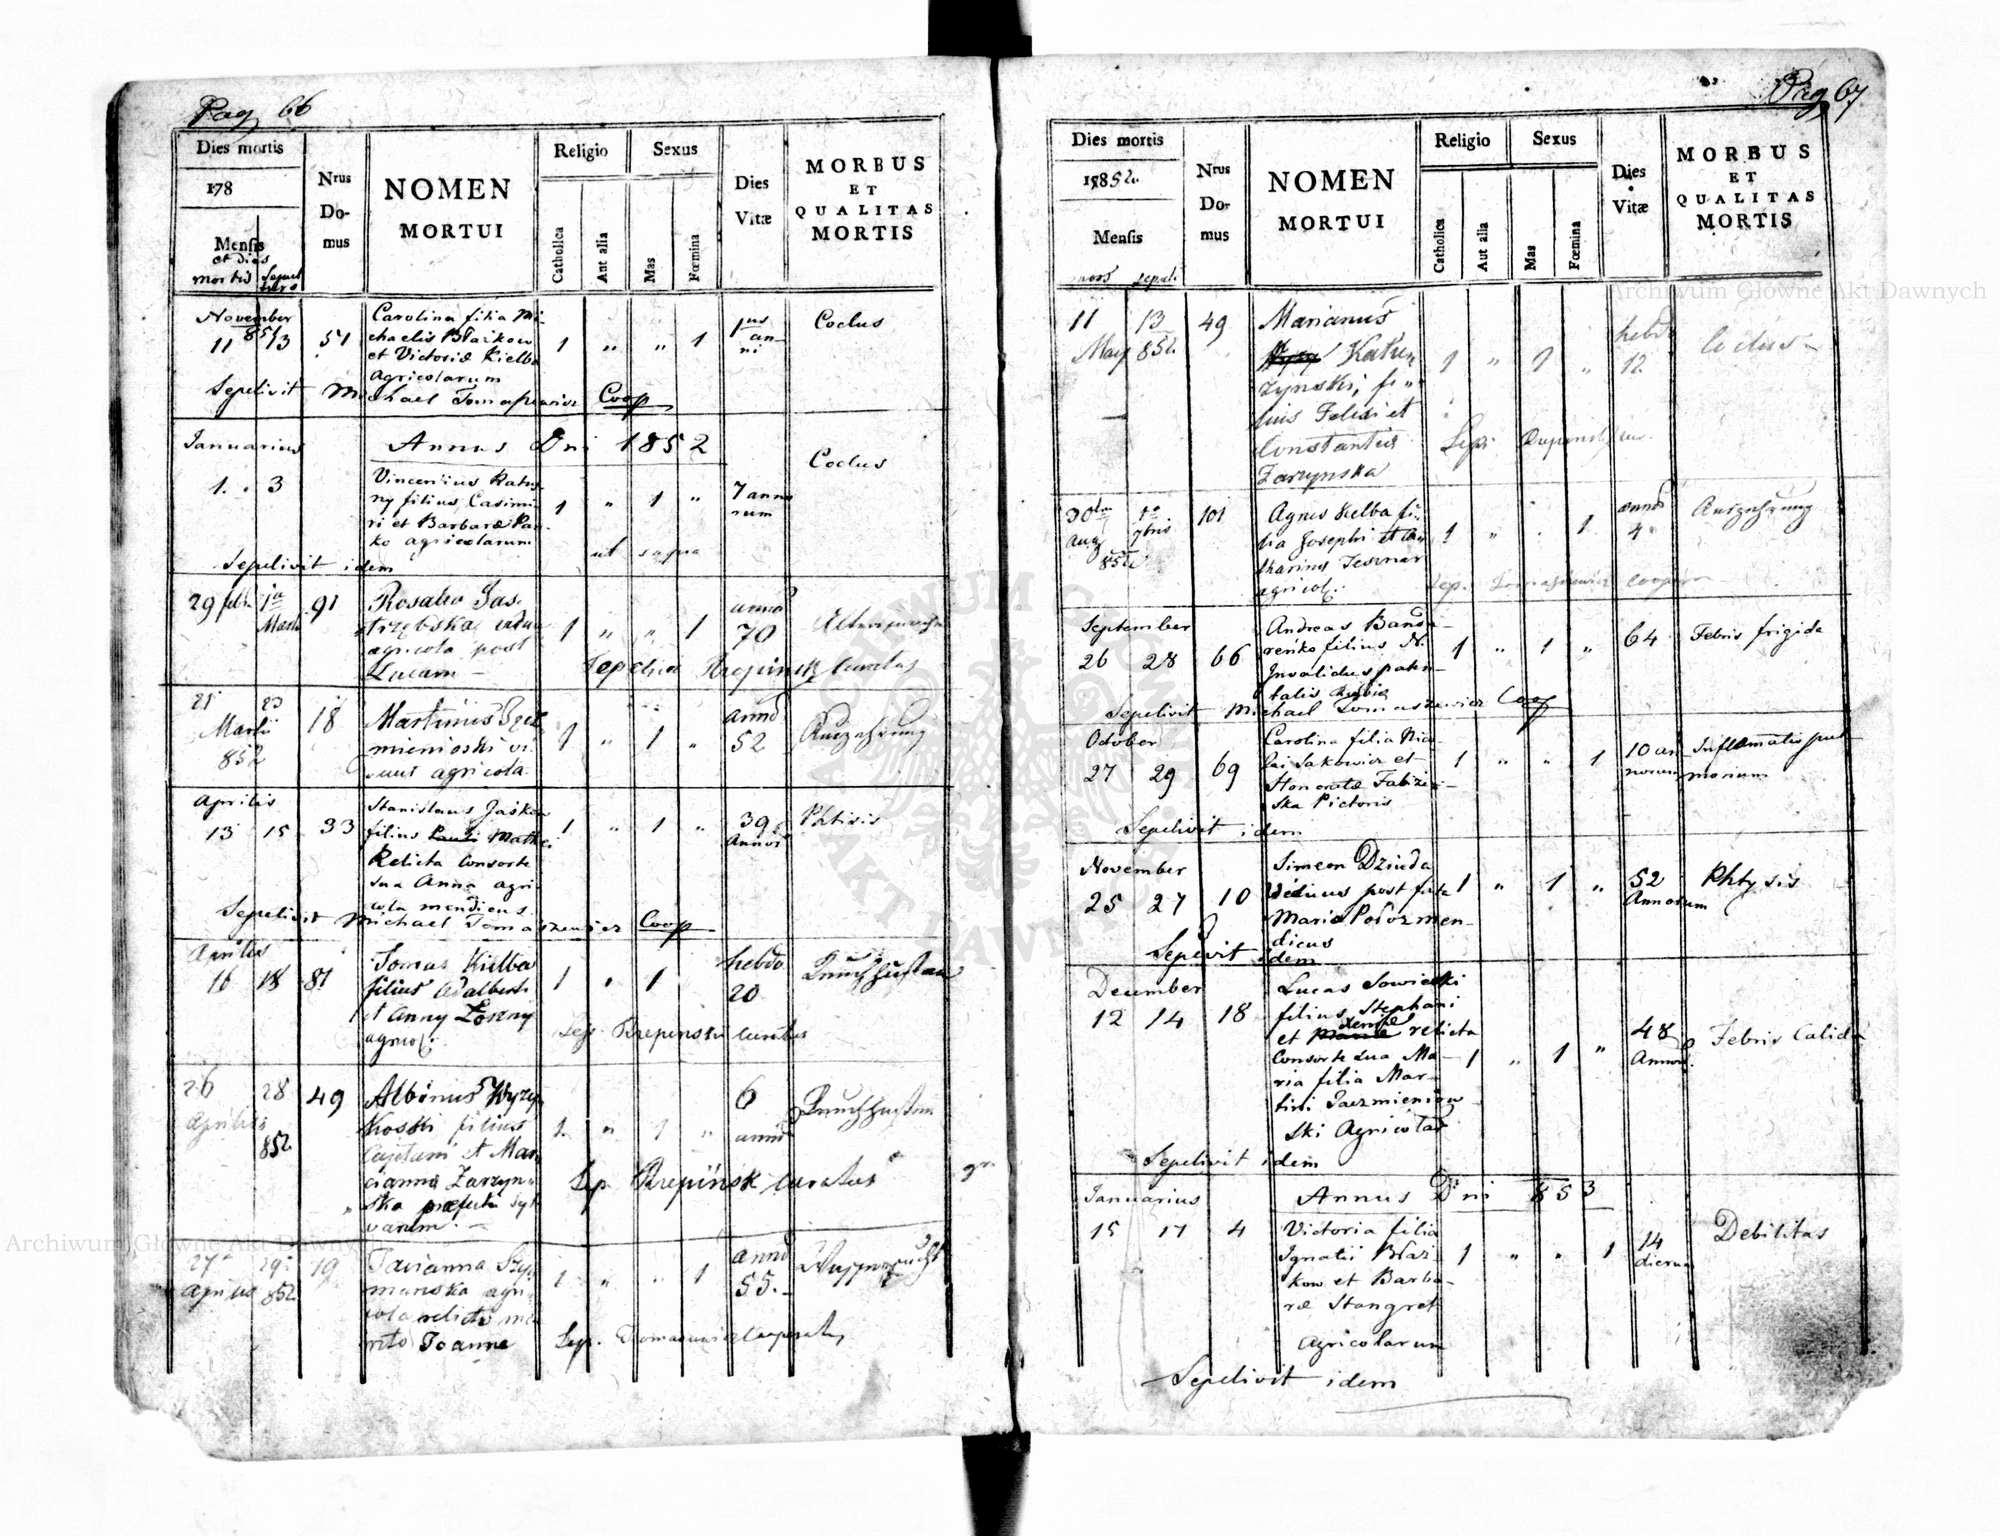 Pag 66
Dies mortis
178
Mensis
et dies
mortis Sepul
turo
Nrus
Do-
mus
NOMEN
MORTUI
Religio
Catholica
Aut alia
Sexus
Mas
Fœmina
Dies
Vitæ
MORBUS
ET
QUALITAS
MORTIS
November
851
11 13 51
Carolina filia Mi-
chaelis Błażkow
et Victoriæ Kielba
Agricolarum
1 " " 1
1us an-
ni
Coclus
Sepelivit Michael Tomaszewicz Coop
Januarius
Annus Dni 1852
1. 3
Vincentius Ratu-
ny filius Casimi-
ri et Barbaræ Pan-
ko agricolarum
1 " 1 "
7 anno
rum
Coclus
ut supra
Sepelivit idem
29 febr. 1a Martii 91
Rosalia Jas-
trzębska vidua
agricola post
Lucam
1 " " 1
anno
70
Sepelivit Krepinsk curatus
21 23
Martii
852
18
Martinus
mienioski vi-
duus agricola
1 " 1 "
anno
52
Auszehrung
Aprilis
13 15 33
Stanislaus Jaśkow
filius Pauli Mathei
Relicta consorte
sua Anna agri-
cola mendicus
1 " 1 "
39
Annor
Phtisis
Sepelivit Michael Tomaszewicz Coop
Aprilis
16 18 81
Tomas Kielba
filius Adalberti
et Anny
agricol.
1 " 1
hebdo
20
Sep. Krepinski curatus
26 28
Aprilis
852
49
Albinus Wyrzy-
koski filius
Cajetani et Mar-
cianna Zarzyn-
ska præfecti syl-
varum
1 " 1 "
6
anno
Sep. Krepinsk curatus
27 29
Aprilis 852
19
Marianna Szy-
manska agri-
cola relicto ma-
rito Joanne
1 " " 1
anno
55.
Sep. Tomaszewicz Cooperator
Pag 67
Dies mortis
17852
Mensis
mors sepult
Nrus
Do-
mus
NOMEN
MORTUI
Religio
Catholica
Aut alia
Sexus
Mas
Fœmina
Dies
Vitæ
MORBUS
ET
QUALITAS
MORTIS
11 13 49
May 852
Marianus
Katu-
zynski, fi-
lius Felici et
Constantia
Zarzynska
1 " 1 "
hebdo
12
Sep. Krepinsk cur.
30 1a 101
Aug 7bris
852
Agnes Kielba fi-
lia Josephi et Ca-
tharina Tesznar
agricol.
1 " . 1
anno
4
Auszehrung
Sep. Tomaszewicz cooper
September
26 28 66
Andreas Banda-
reńko filius N.
Invalidus paten-
talis
1 " 1 "
64
Febris frigida
Sepelivit Michael Tomaszewicz Coop
October
27 29 69
Carolina filia Nico-
lai Sakowicz et
Honoratæ
ska Pictoris
1 " " 1
10 an
norum
Inflamatio pul-
monum
Sepelivit idem
November
25 27 10
Simeon Dziuda
viduus post fata
Maria Połoz men-
dicus
1 " 1 "
52
Annorum
Phtysis
Sepelivit idem
December
12 14 18
Lucas Sowieski
filius Stephani
et relicta
Consorte sua Ma-
ria filia Mar-
tini Paczmieniow-
ski Agricolar
1 " 1 "
48
Annor.
Febris Calida
Sepelivit idem
Januarius
Annus Dni 853
15 17 4
Victoria filia
Ignatii Błaz-
kow et Barba-
ræ Stangret
agricolarum
1 " " 1
14
dierum
Debilitas
Sepelivit idem
Archiwum Główne Akt Dawnych
Archiwum Główne Akt Dawnych
ARCHIWUM GŁÓWNE AKT DAWNYCH